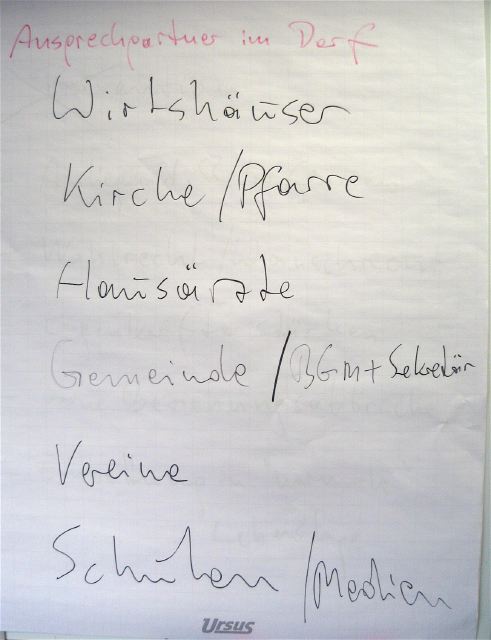 Ansprechpartner im Dorf
Wirtshäuser
Kirche / Pfarre
Hausärzte
Gemeinde / BGM + Sekretär
Vereine
Schulen / Medien
Ursus